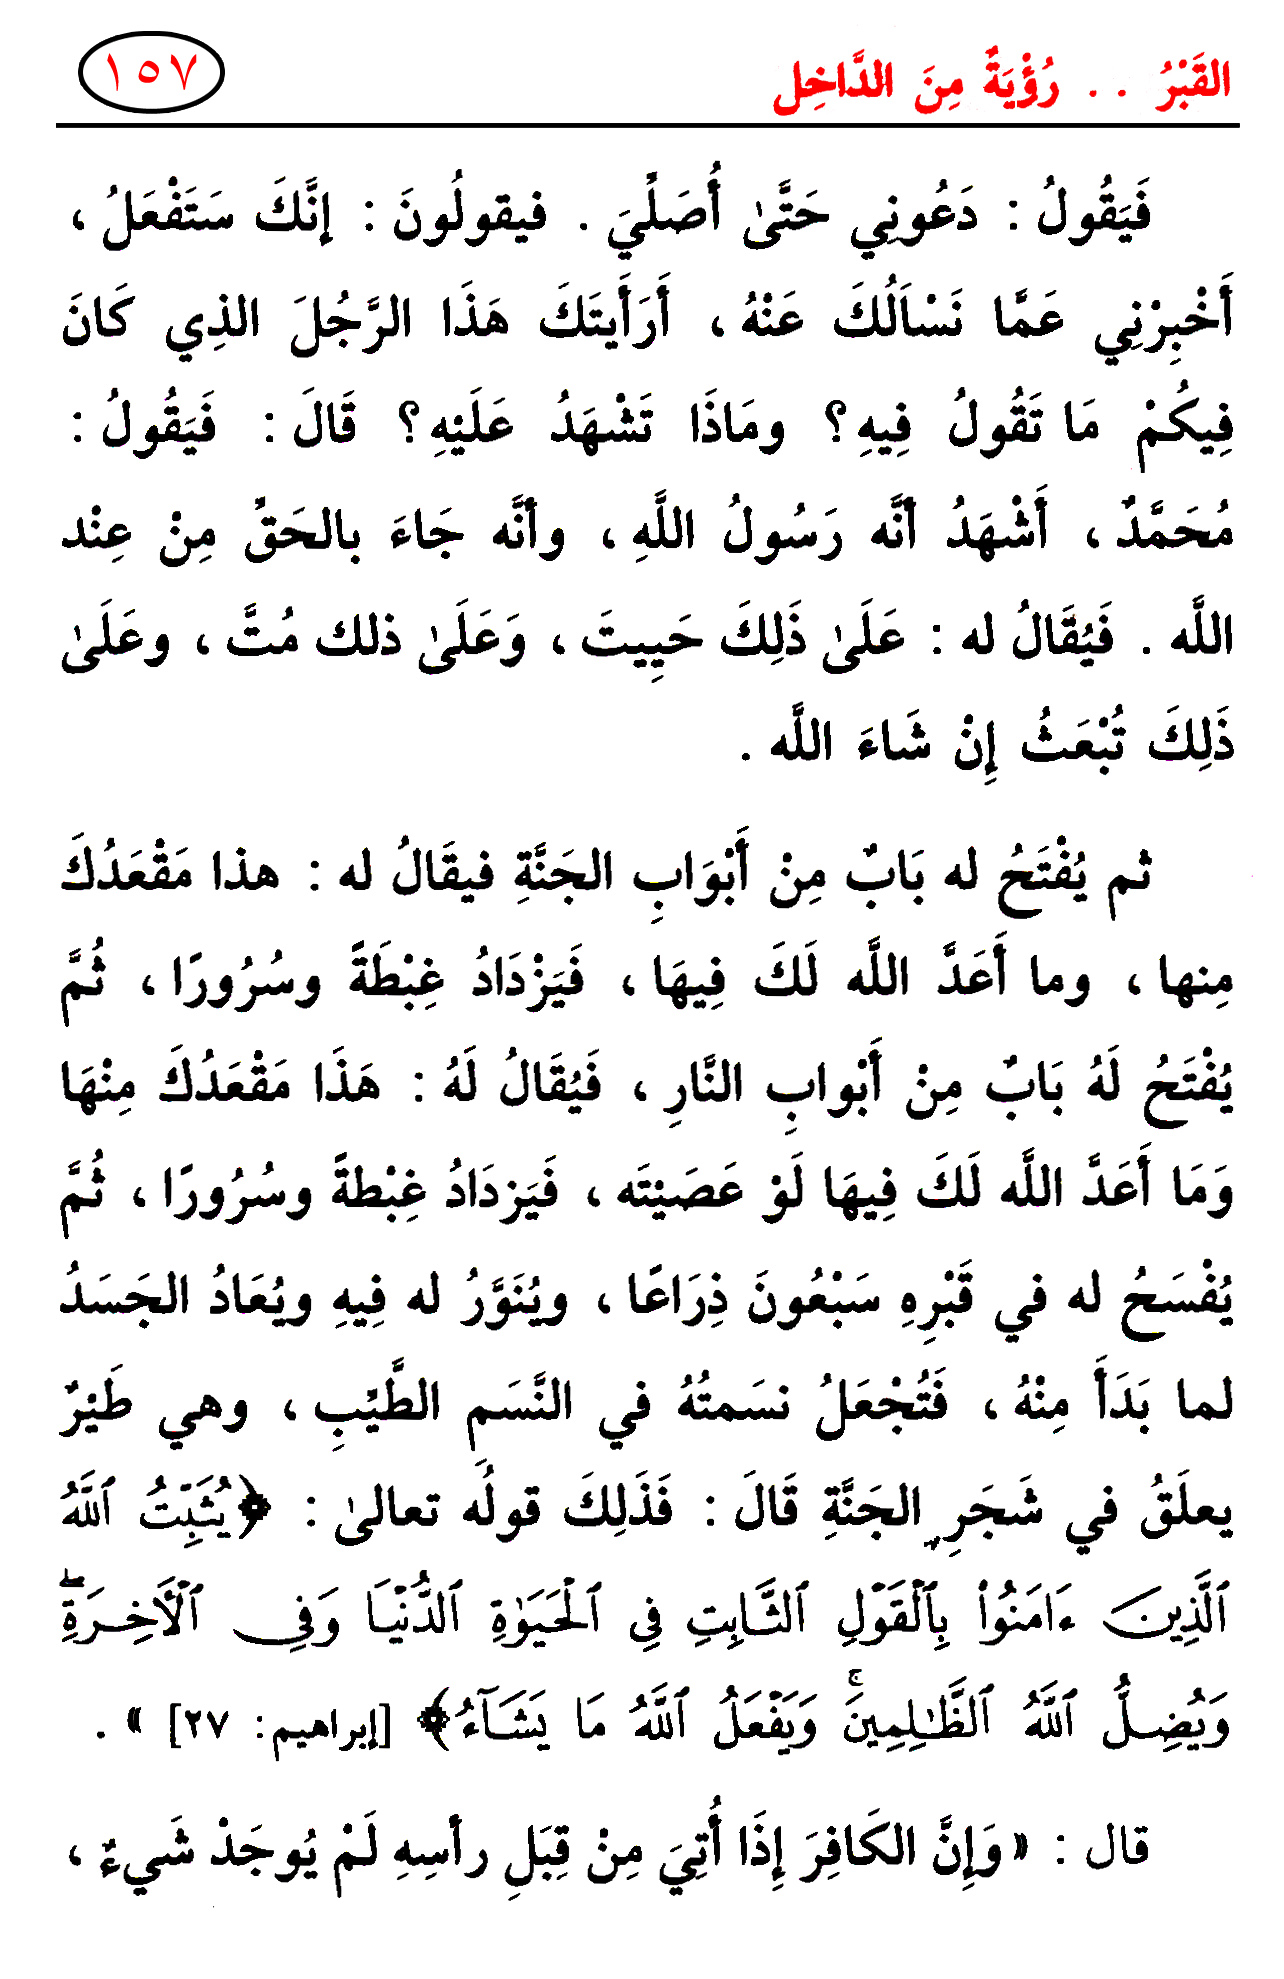 القَبْرُ . . رُؤْيَةٌ مِنَ الدَّاخِل
١٥٧
فَيَقُولُ : دَعُونِي حَتَّىٰ أُصَلِّيَ . فيقولُونَ : إنَّكَ سَتَفْعَلُ ،
أَخْبِرْنِي عَمَّا نَسْأَلُكَ عَنْهُ ، أَرَأَيتَكَ هَذَا الرَّجُلَ الذِي كَانَ
فِيكُمْ مَا تَقُولُ فِيهِ ؟ ومَاذَا تَشْهَدُ عَلَيْهِ ؟ قَالَ : فَيَقُولُ :
مُحَمَّدٌ ، أَشْهَدُ أنَّه رَسُولُ اللَّهِ ، وأنَّه جَاءَ بالحَقِّ مِنْ عِنْد
اللَّه . فَيُقَالُ له : عَلَىٰ ذَلِكَ حَيِيتَ ، وَعَلَىٰ ذلك مُتَّ ، وعَلَىٰ
ذَلِكَ تُبْعَثُ إِنْ شَاءَ اللَّه .
ثم يُفْتَحُ له بَابٌ مِنْ أَبْوَابِ الجَنَّةِ فيقَالُ له : هذا مَقْعَدُكَ
مِنها ، وما أَعَدَّ اللَّه لَكَ فِيهَا ، فَيَزْدَادُ غِبْطَةً وسُرُورًا ، ثُمَّ
يُفْتَحُ لَهُ بَابٌ مِنْ أَبْوابِ النَّارِ ، فَيُقَالُ لَهُ : هَذَا مَقْعَدُكَ مِنْهَا
وَمَا أَعَدَّ اللَّه لَكَ فِيهَا لَوْ عَصَيْتَه ، فَيَزدَادُ غِبْطةً وسُرُورًا ، ثُمَّ
يُفْسَحُ له في قَبْرِهِ سَبْعُونَ ذِرَاعًا ، ويُنَوَّرُ له فِيهِ ويُعَادُ الجَسَدُ
لما بَدَأَ مِنْهُ ، فَتُجْعَلُ نسَمتُهُ في النَّسَم الطَّيِّبِ ، وهي طَيْرٌ
يعلَقُ في شَجَرِ الجَنَّةِ قَالَ : فَذَلِكَ قولُه تعالىٰ : ﴿يُثَبِّتُ ٱللَّهُ
ٱلَّذِينَ ءَامَنُوا۟ بِٱلْقَوْلِ ٱلثَّابِتِ فِى ٱلْحَيَوٰةِ ٱلدُّنْيَا وَفِى ٱلْأَخِرَةِۖ
وَيُضِلُّ ٱللَّهُ ٱلظَّٰلِمِينَۚ وَيَفْعَلُ ٱللَّهُ مَا يَشَآءُ﴾ [إبراهيم: ٢٧] » .
قال : « وَإِنَّ الكَافِرَ إِذَا أُتِيَ مِنْ قِبَلِ رأسِهِ لَمْ يُوجَدْ شَيءٌ ،